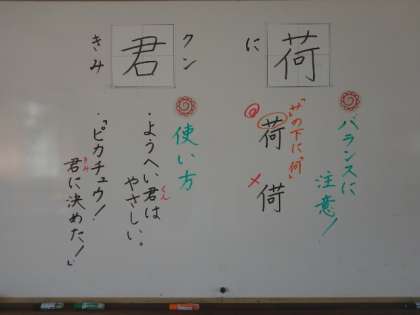 荷
に
バランスに
注意!
「サ」の下に「何」
荷
×
君
クン
きみ
使い方
・ようへい君は
くん
やさしい。
・「ピカチュウ!
君に決めた!」
きみ